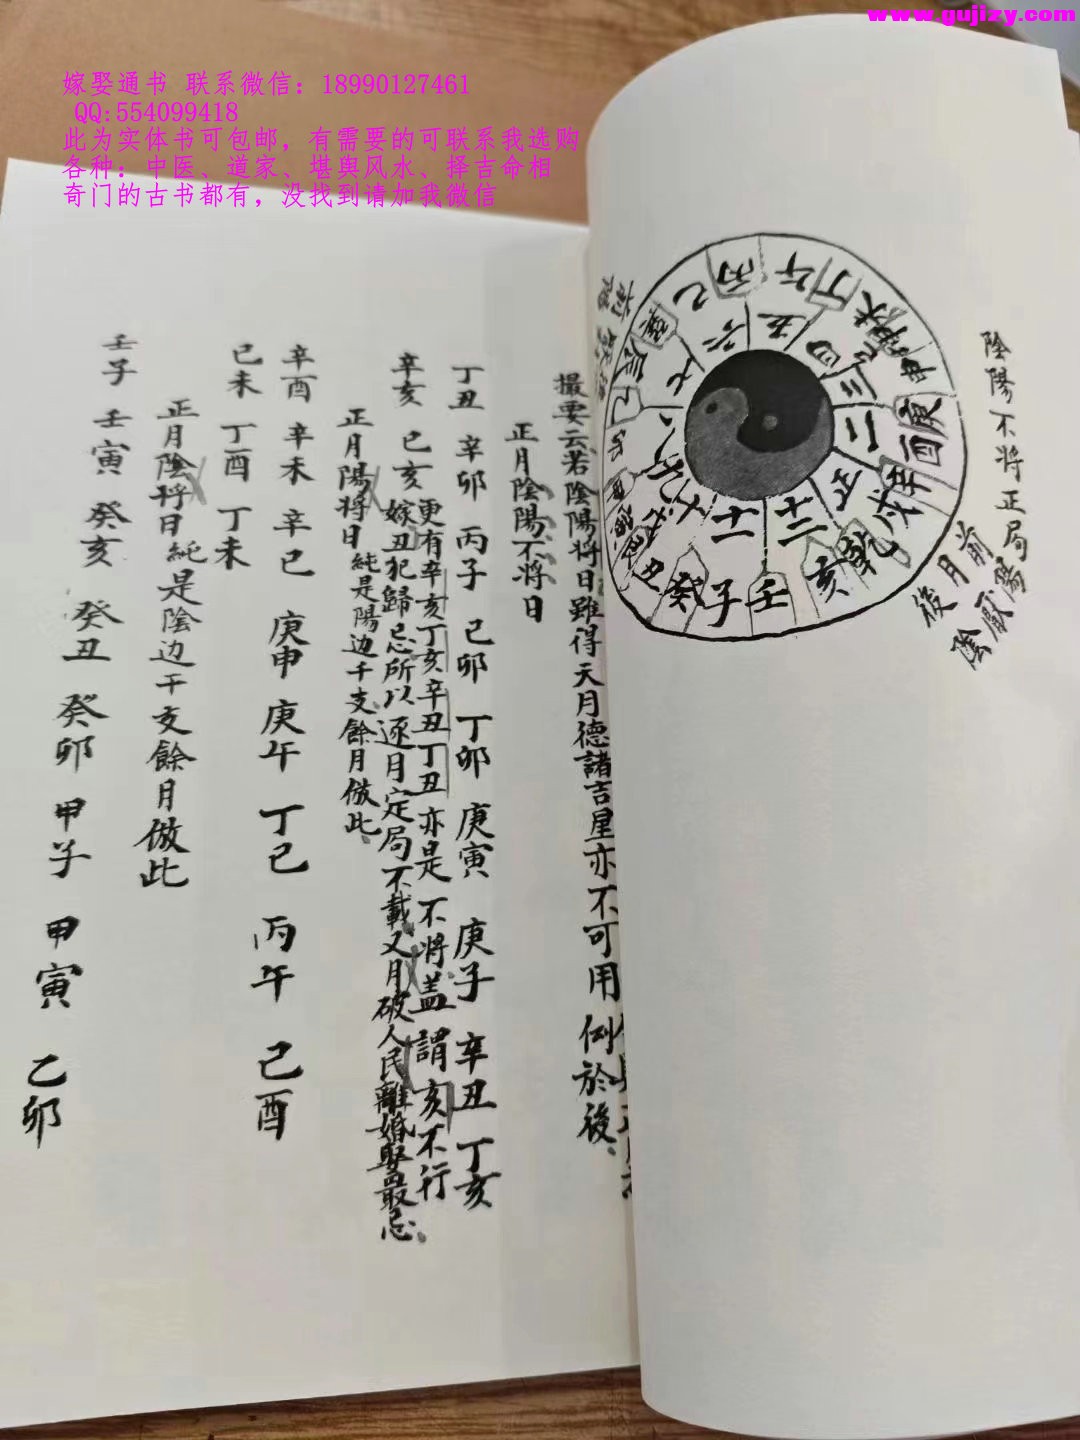 www.gujizy.com
嫁娶通书 联系微信：18990127461
QQ:554099418
此为实体书可包邮，有需要的可联系我选购
各种：中医、道家、堪舆风水、择吉命相
奇门的古书都有，没找到请加我微信
陰陽不将正局
前陽
月厭
後陰
丙 午 丁 申 庚 酉 辛 戌 乾 亥 壬 子 癸 丑
正 二 三 四 五 六 七 八 九 十 十一 十二
撮要云若陰陽将日雖得天月德諸吉星亦不可用 例於後
正月陰陽不将日
丁丑 辛卯 丙子 己卯 丁卯 庚寅 庚子 辛丑 丁亥
辛亥 己亥
更有辛亥丁亥辛丑丁丑亦是不将盖謂亥不行
嫁丑犯歸忌所以逐月定局不載又月破人民離婚娶最忌
正月陽将日 純是陽边干支餘月倣此
辛酉 辛未 辛巳 庚申 庚午 丁巳 丙午 己酉
己未 丁酉 丁未
正月陰将日 純是陰边干支餘月倣此
壬子 壬寅 癸亥 癸丑 癸卯 甲子 甲寅 乙卯